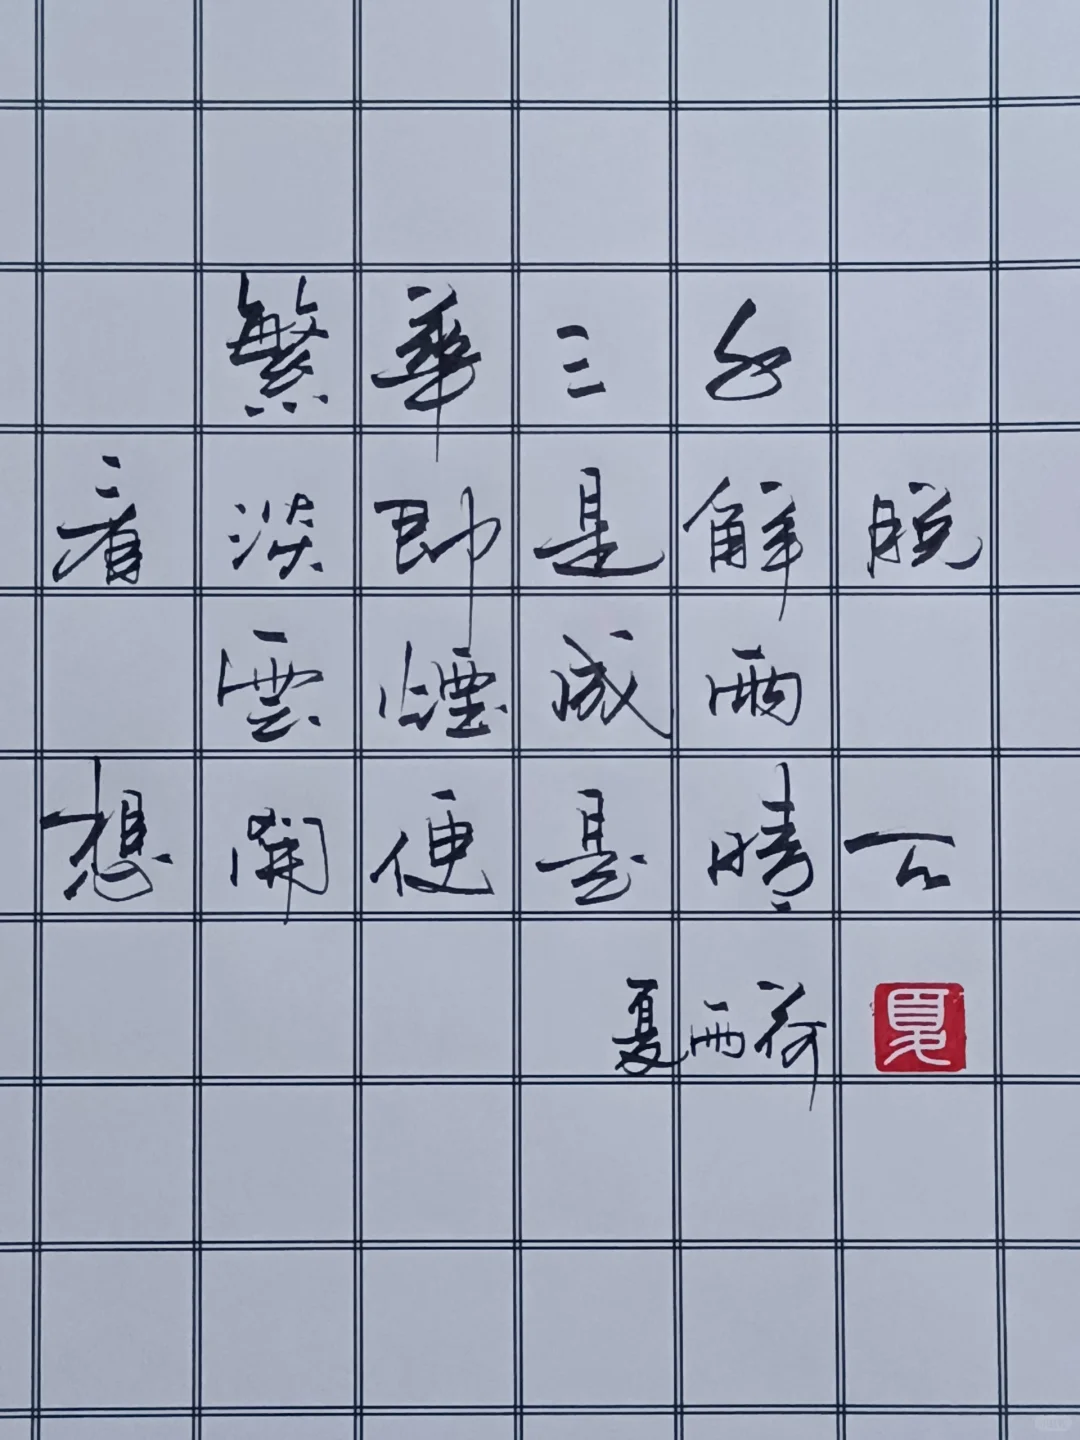 繁華三千
看淡即是解脱
雲煙成雨
想開便是晴天
夏雨荷 夏